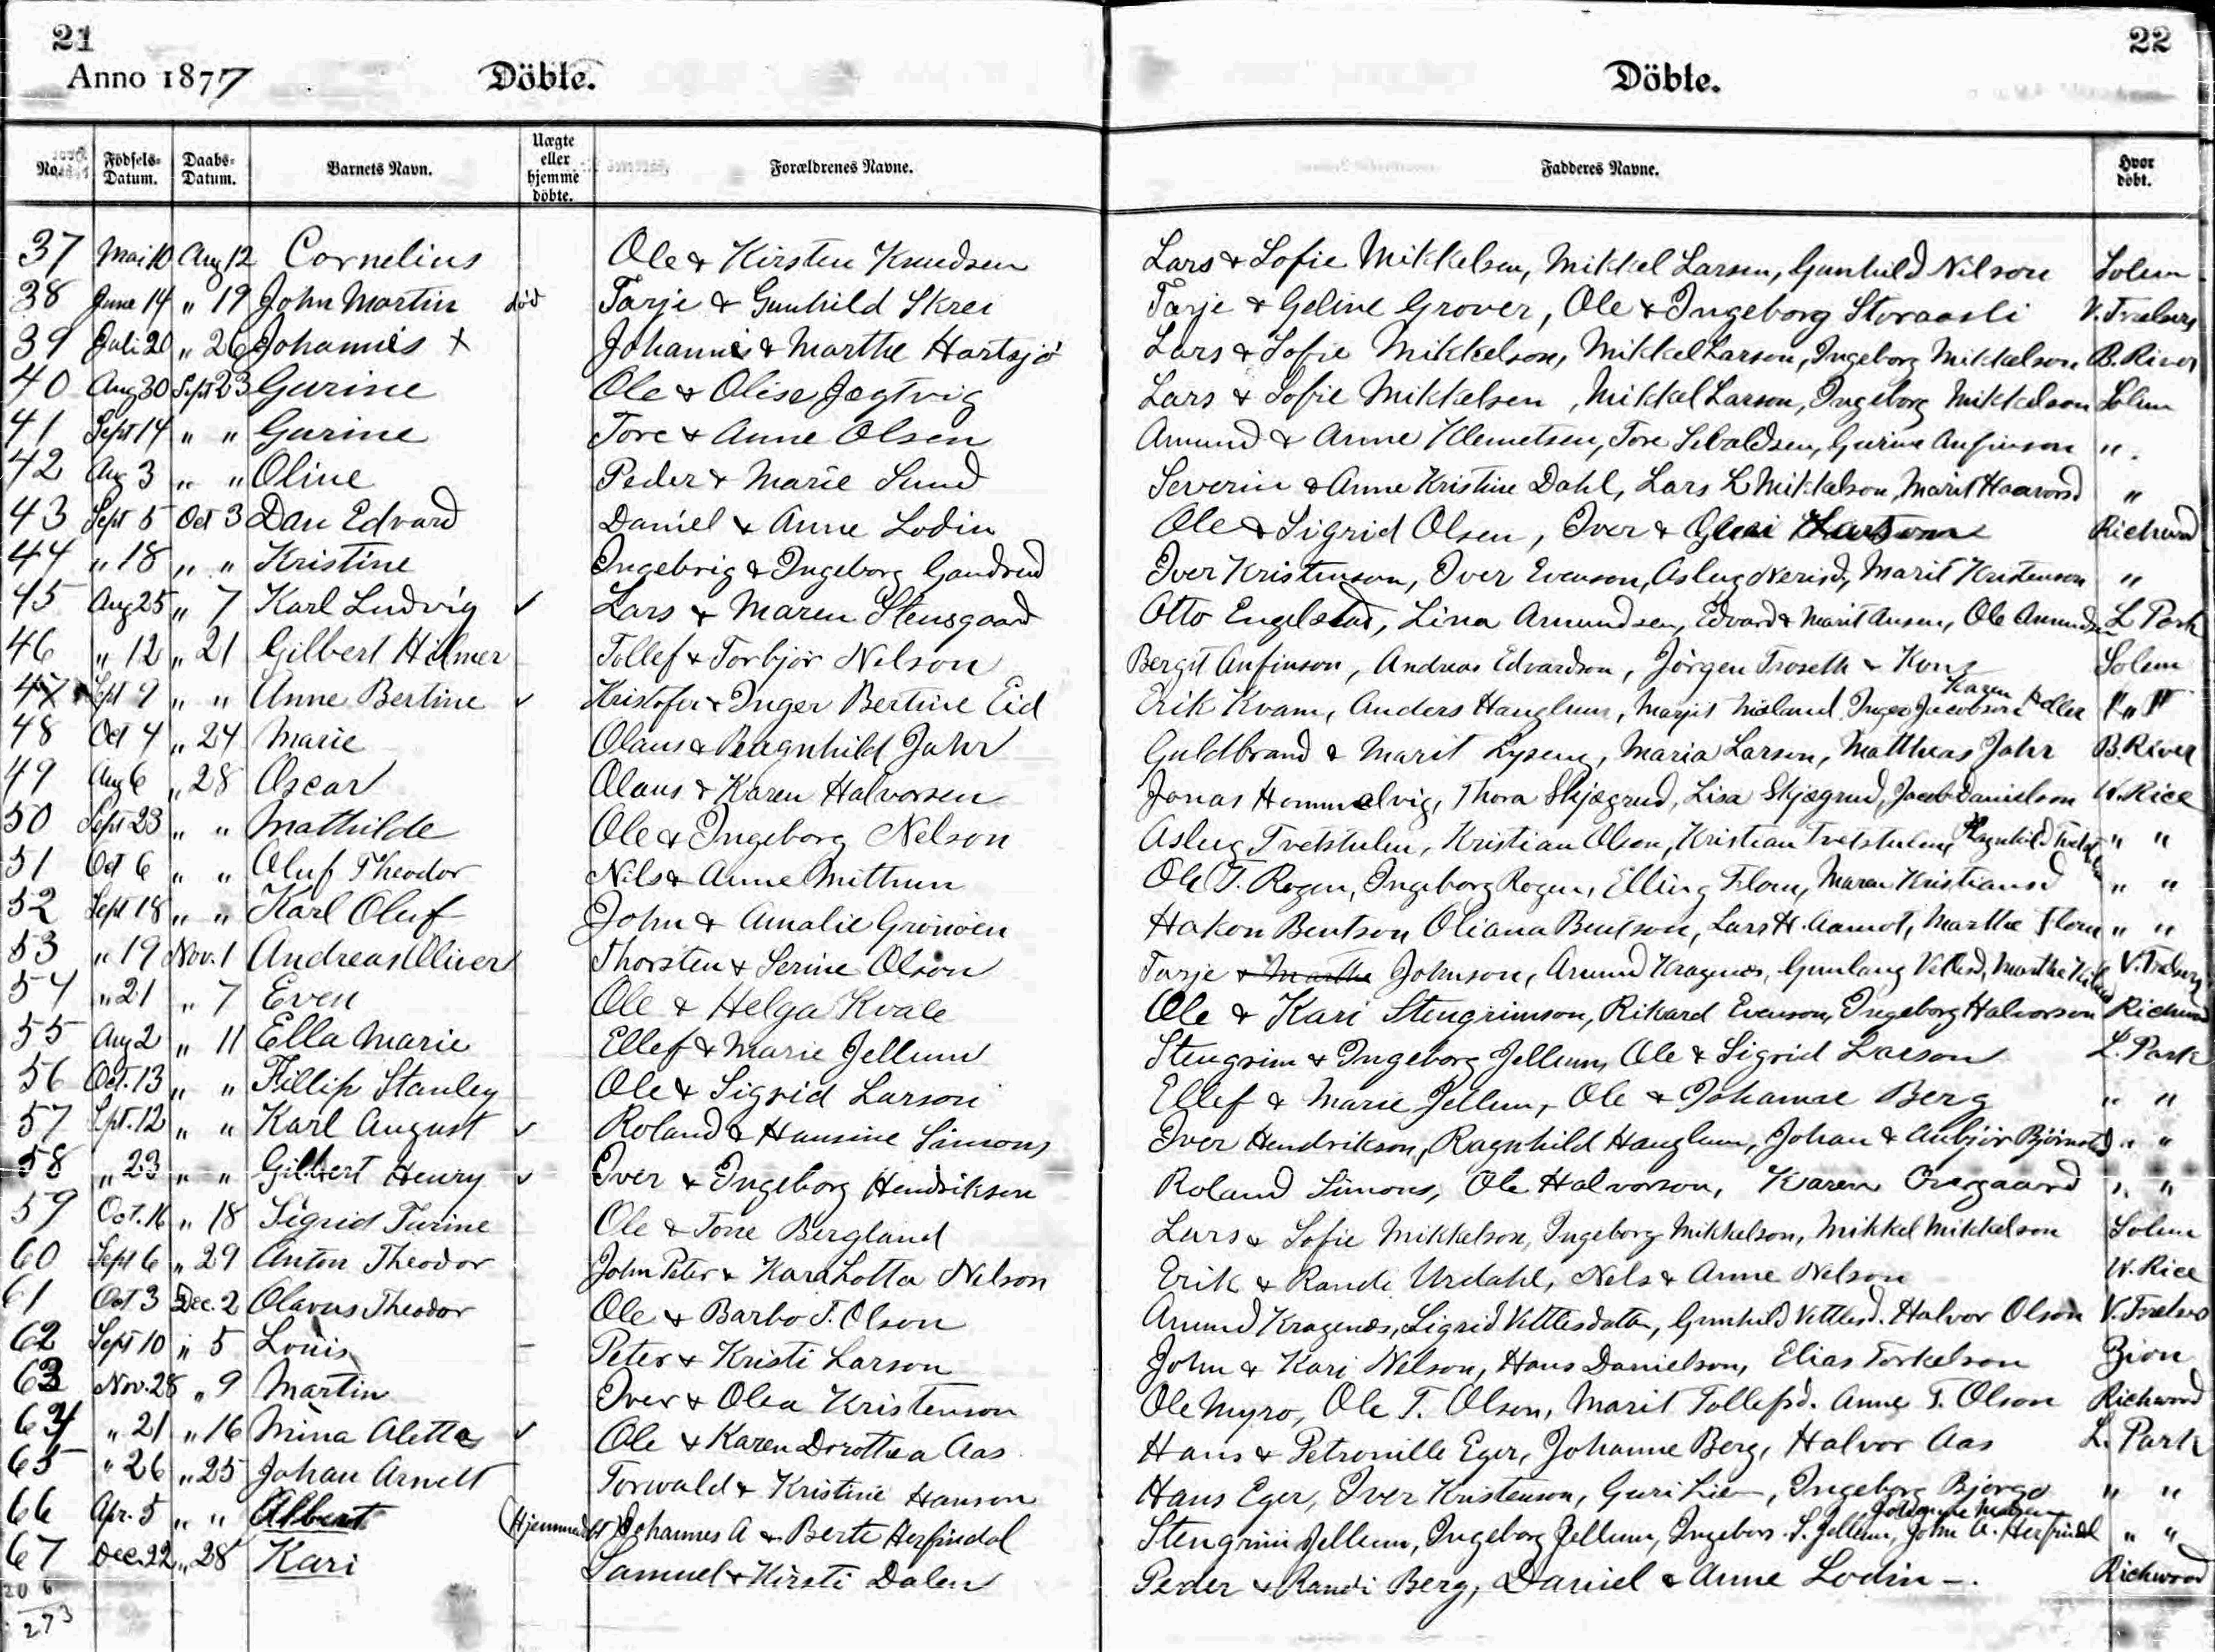 21
22
Anno 1877
Döbte.
Döbte.
No. Födsels-Datum. Daabs-Datum. Barnets Navn. Uægte eller hjemme döbte. Forældrenes Navne. Fadderes Navne. Hvor döbt.
37 Mai 10 Aug 12 Cornelius Ole & Kirsten Knudsen Lars & Sofie Mikkelsen, Mikkel Larsen, Gunhild Nilson Solem
38 June 14 " 19 John Martin död Tarje & Gunhild Skrei Tarje & Geline Grover, Ole & Ingeborg Storaasli V. Frelsers
39 Juli 20 " 26 Johannes + Johannes & Marthe Hartsjö Lars & Sofie Mikkelson, Mikkel Larson, Ingeborg Mikkelson B. River
40 Aug 30 Sept 23 Gurine Ole & Olise Jegtvig Lars & Sofie Mikkelsen, Mikkel Larson, Ingeborg Mikkelson Solem
41 Sept 14 " " Gurine Tore & Anne Olsen Amund & Anne Klemetsen, Tore Sebaldsen, Gurine Anfinson "
42 Aug 3 " " Oline Peder & Marie Sund Severin & Anne Kristine Dahl, Lars L Mikkelson, Marit Haavord "
43 Sept 5 Oct 3 Dan Edvard Daniel & Anne Lodin Ole & Sigrid Olsen, Iver & Larson Richwood
44 " 18 " " Kristine Ingebrig & Ingeborg Gandrud Iver Kristenson, Iver Evenson, Aslug Nerisd, Marit Kristenson "
45 Aug 25 " 7 Karl Ludvig ✓ Lars & Maren Stensgaard Otto Engelstad, Lina Amundsen, Edvard & Marit Ansen, Ole Amundsen L Park
46 " 12 " 21 Gilbert Hilmer Tollef & Torbjör Nelson Bergit Anfinson, Andreas Edvardson, Jörgen Troseth & Kone Solem
47 Sept 9 " " Anne Bertine ✓ Kristofer & Inger Bertine Eid Erik Kvam, Anders Hauglum, Marjit Misland, Inger Jacobson Karen Adler " "
48 Oct 4 " 24 Marie Olaus & Ragnhild Jahr Guldbrand & Marit Lyseng, Maria Larson, Matthias Jahr B. River
49 Aug 6 " 28 Oscar Olaus & Karen Halvorsen Jonas Hommelvig, Thora Skjægrud, Lisa Skjægrud, Jacob Danielson W. Rice
50 Sept 23 " " Mathilde Ole & Ingeborg Nelson Aslug Tvetstulen, Kristian Olson, Kristian Tvetstulen, Ragnhild " "
51 Oct 6 " " Oluf Theodor Nils & Anne Mithun Ole T. Rogen, Ingeborg Rogen, Elling Flom, Maren Kristiansd " "
52 Sept 18 " " Karl Oluf John & Amalie Gronoien Hakon Bentson Oliana Bentson, Lars H. Aamot, Marthe Flom " "
53 " 19 Nov. 1 Andreas Oliver Thorsten & Serine Olson Tarje & Marthe Johnson, Amund Kragenes, Gunlaug Vetlesd, Marthe V. Frelsers
54 " 21 " 7 Even Ole & Helga Kvale Ole & Kari Stengrimson, Rikard Evenson, Ingeborg Halvorson Richwood
55 Aug 2 " 11 Ella Marie Ellef & Marie Jellum Stengrim & Ingeborg Jellum, Ole & Sigrid Larson L. Park
56 Oct. 13 " " Fillip Stanley Ole & Sigrid Larson Ellef & Marie Jellum, Ole & Johanne Berg " "
57 Spt. 12 " " Karl August ✓ Roland & Hansine Simons Iver Hendrikson, Ragnhild Hauglum, Johan & Anbjör " "
58 " 23 " " Gilbert Henry ✓ Iver & Ingeborg Hendriksen Roland Simons, Ole Halvorson, Karen Overgaard " "
59 Oct. 16 " 18 Sigrid Turine Ole & Tone Bergland Lars & Sofie Mikkelson, Ingeborg Mikkelson, Mikkel Mikkelson Solem
60 Sept 6 " 29 Anton Theodor John Peter & Kara Lotta Nelson Erik & Rande Urdahl, Nels & Anne Nelson W. Rice
61 Oct 3 Dec. 2 Olavus Theodor Ole & Barbo T. Olson Amund Kragenes, Sigrid Vettlesdatter, Gunhild Vettlesd. Halvor Olson V. Frelsers
62 Sept 10 " 5 Louis Peter & Kristi Larson John & Kari Nelson, Hans Danielson, Elias Torkelson Zion
63 Nov. 28 " 9 Martin Iver & Olea Kristenson Ole Myro, Ole T. Olson, Marit Tollefsd. Anne T. Olson Richwood
64 " 21 " 16 Mina Aletta ✓ Ole & Karen Dorothea Aas Hans & Petronille Eger, Johanne Berg, Halvor Aas L. Park
65 " 26 " 25 Johan Arnelt Torwald & Kristine Hanson Hans Eger, Iver Kristenson, Guri Lien, Ingeborg Bjorgo " "
66 Apr. 5 " " Albert (Hjemmedöbt) Johannes A & Berte Herfindal Stengrim Jellum, Ingeborg Jellum, Ingebor S. Jellum, John A. Herfindal " "
67 Dec. 22 " 28 Kari Samuel & Kirsti Dalen Peder & Randi Berg, Daniel & Anne Lodin -. Richwood
20 6
273